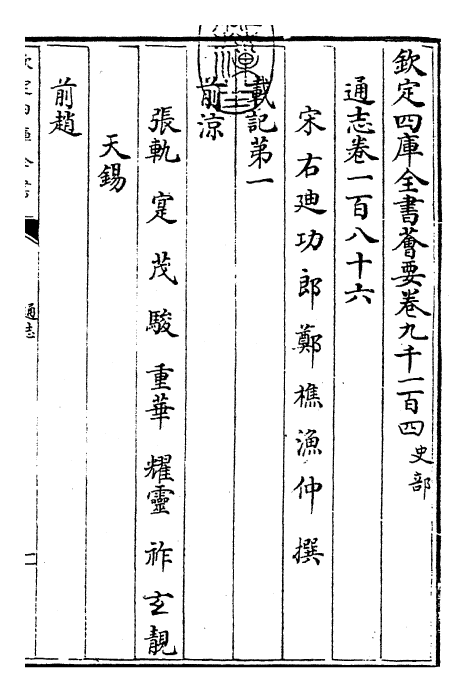 欽定四庫全書薈要卷九千一百四 史部
通志卷一百八十六
宋右迪功郎鄭樵漁仲撰
載記第一
前涼
張軌 寔 茂 駿 重華 耀靈 祚 玄靚
天錫
前趙
通志